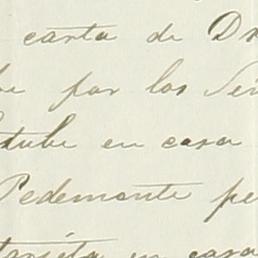 carta de Dn
por los Señ
tube en casa
Pedemonte pe
tarjeta en casa